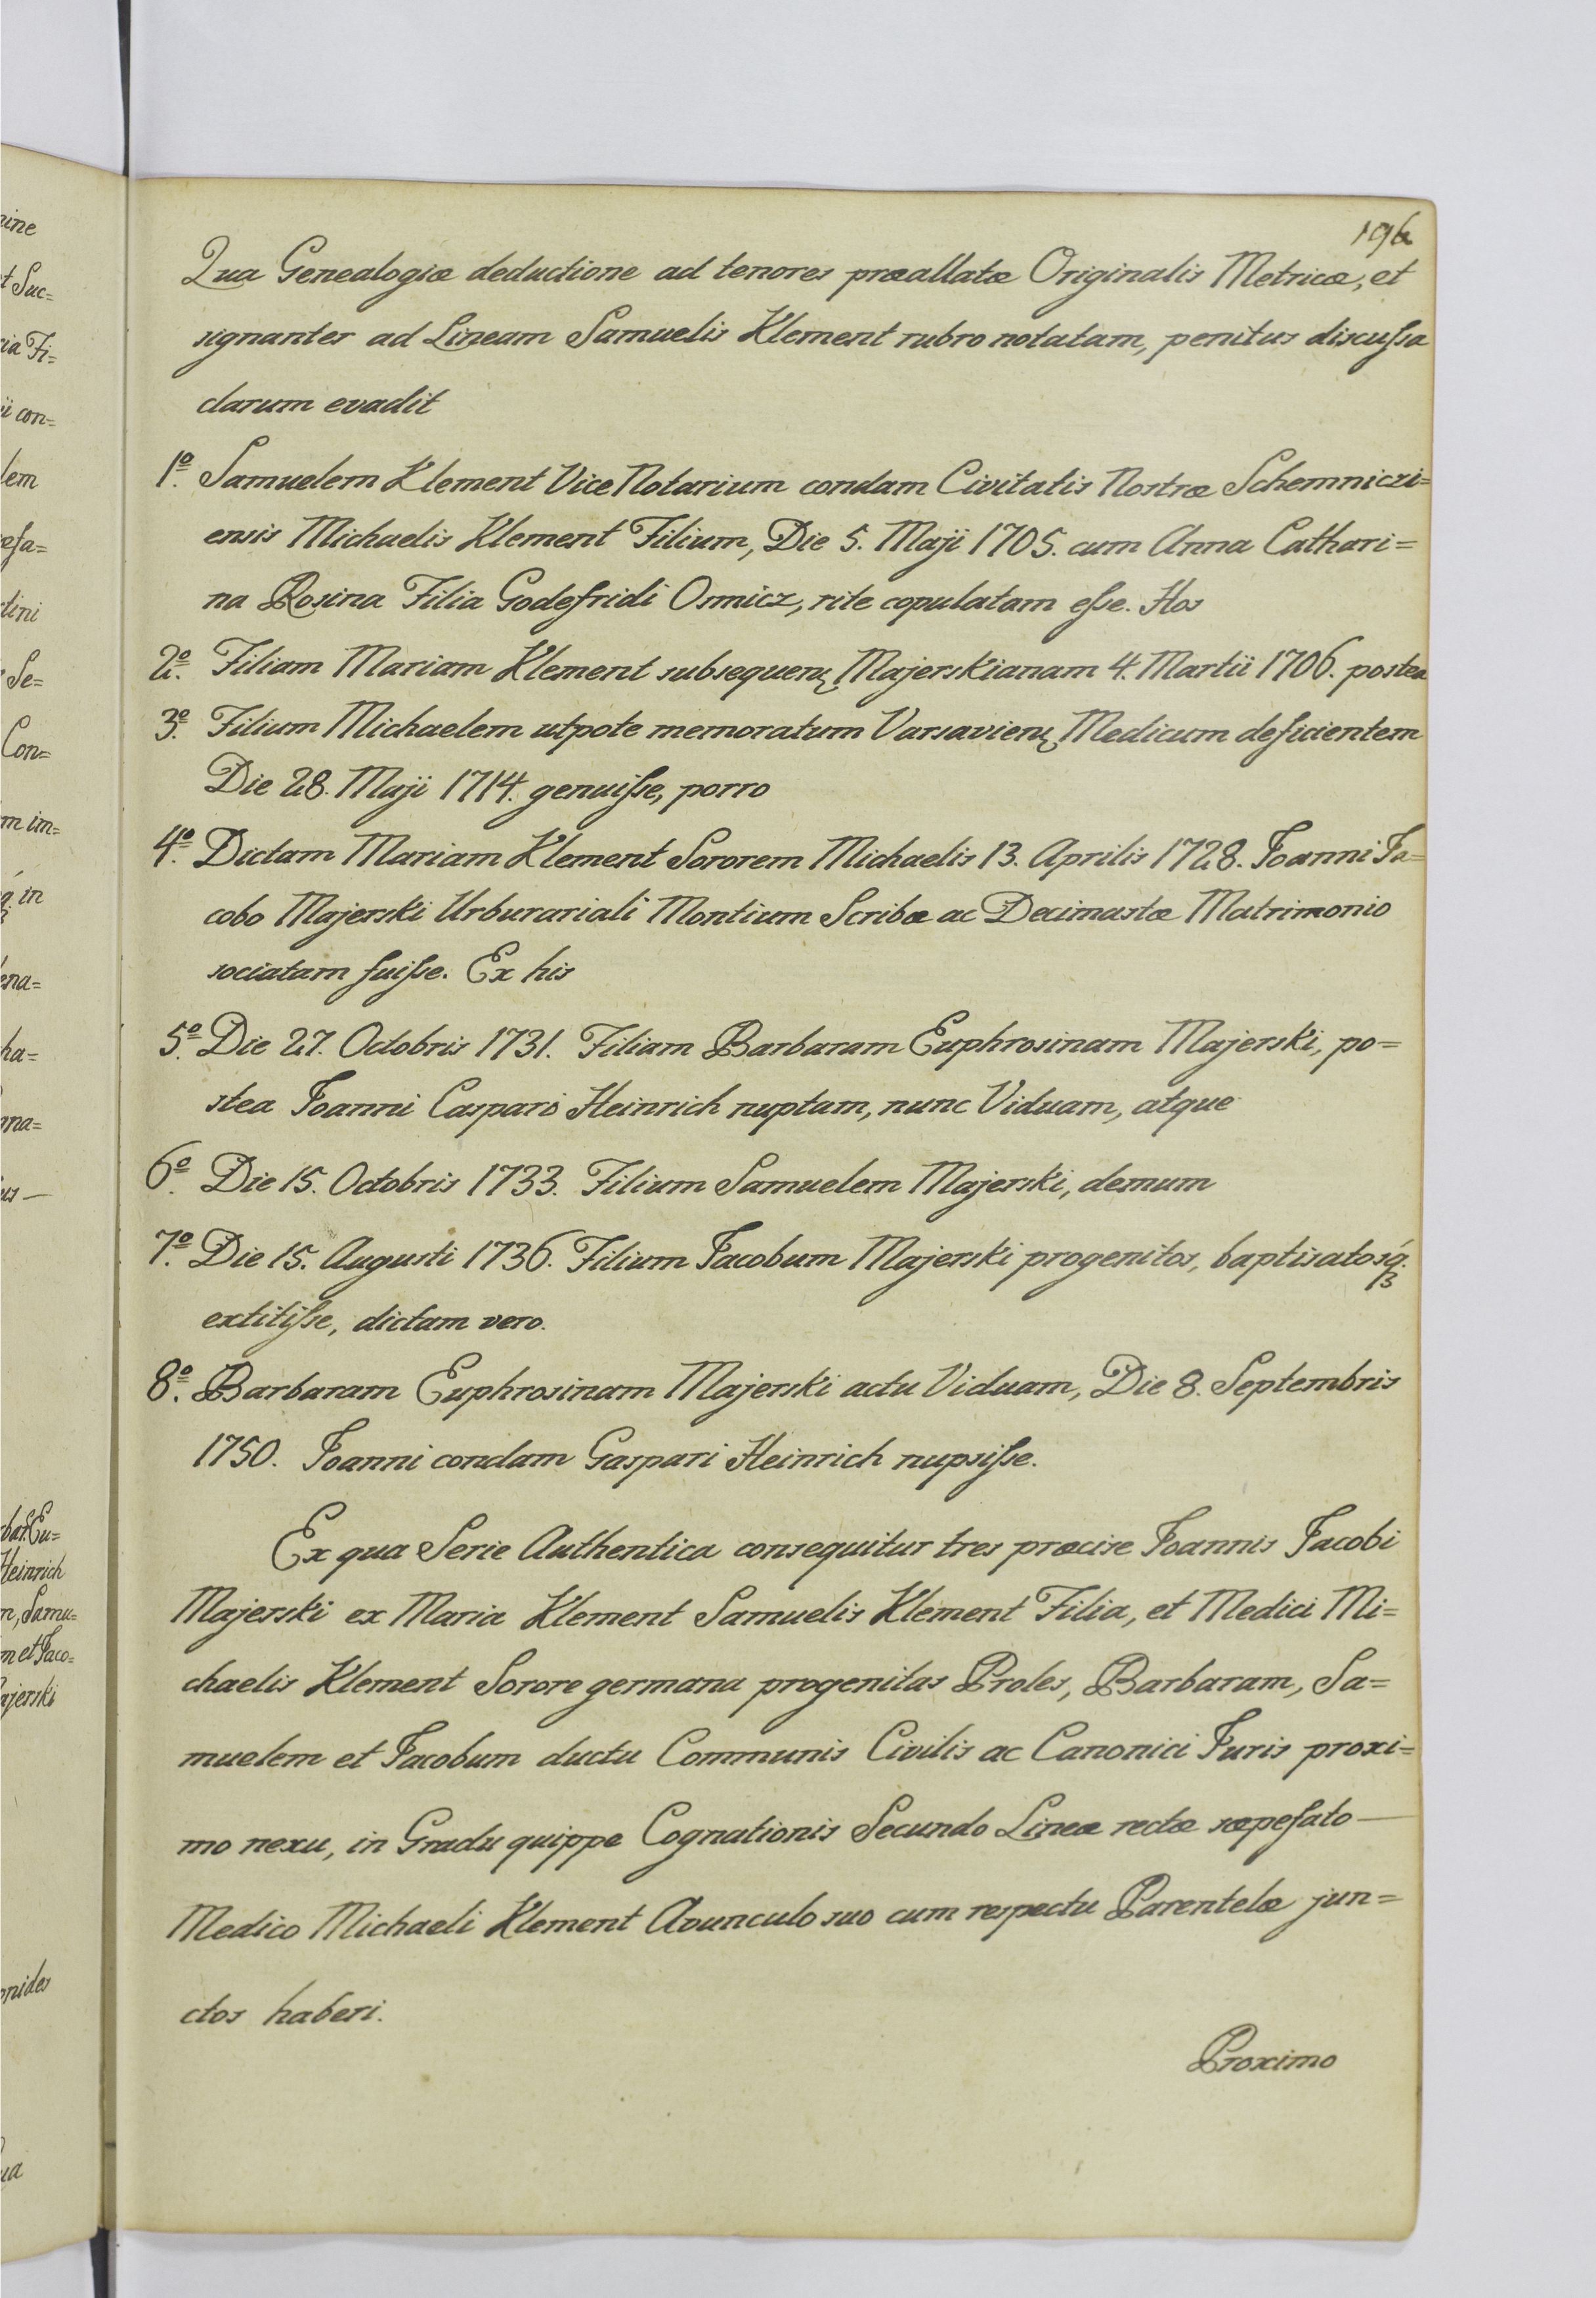 196
Qua Genealogiæ deductione ad tenores præallatæ Originalis Metricæ, et
signanter ad Lineam Samuelis Klement rubro notatam, penitus discuſsa
clarum evadit
1º. Samuelem Klement Vice Notarium condam Civitatis Nostræ Schemniczi=
ensis Michaelis Klement Filium, Die 5. Maji 1705. cum Anna Cathari=
na Rosina Filia Godefridi Osmicz, rite copulatam eſse. Hos
2º. Filiam Mariam Klement subsequenʒ Majerskianam 4. Martii 1706. postea
3º. Filium Michaelem utpote memoratum Varsavienʒ Medicum deficientem
Die 28. Maji 1714. genuiſse, porro
4º. Dictam Mariam Klement Sororem Michaelis 13. Aprilis 1728. Joanni Ja=
cobo Majerski Urburariali Montium Scribæ ac Decimastæ Matrimonio
sociatam fuiſse. Ex his
5º. Die 27. Octobris 1731. Filiam Barbaram Euphrosinam Majerski, po=
stea Joanni Caspari Heinrich nuptam, nunc Viduam, atque
6º. Die 15. Octobris 1733. Filium Samuelem Majerski, demum
7º. Die 15. Augusti 1736. Filium Jacobum Majerski progenitos, baptisatosq́ʒ
extitiſse, dictam vero.
8º. Barbaram Euphrosinam Majerski actu Viduam, Die 8. Septembris
1750. Joanni condam Gaspari Heinrich nupsiſse.
Ex qua Serie Authentica consequitur tres præcise Joannis Jacobi
Majerski ex Maria Klement Samuelis Klement Filia, et Medici Mi=
chaelis Klement Sorore germana progenitas Proles, Barbaram, Sa=
muelem et Jacobum ductu Communis Civilis ac Canonici Juris proxi=
mo nexu, in Gradu quippe Cognationis Secundo Lineæ rectæ sæpefato —
Medico Michaeli Klement Avunculo suo cum respectu Parentelæ jun=
ctos haberi.
Proximo